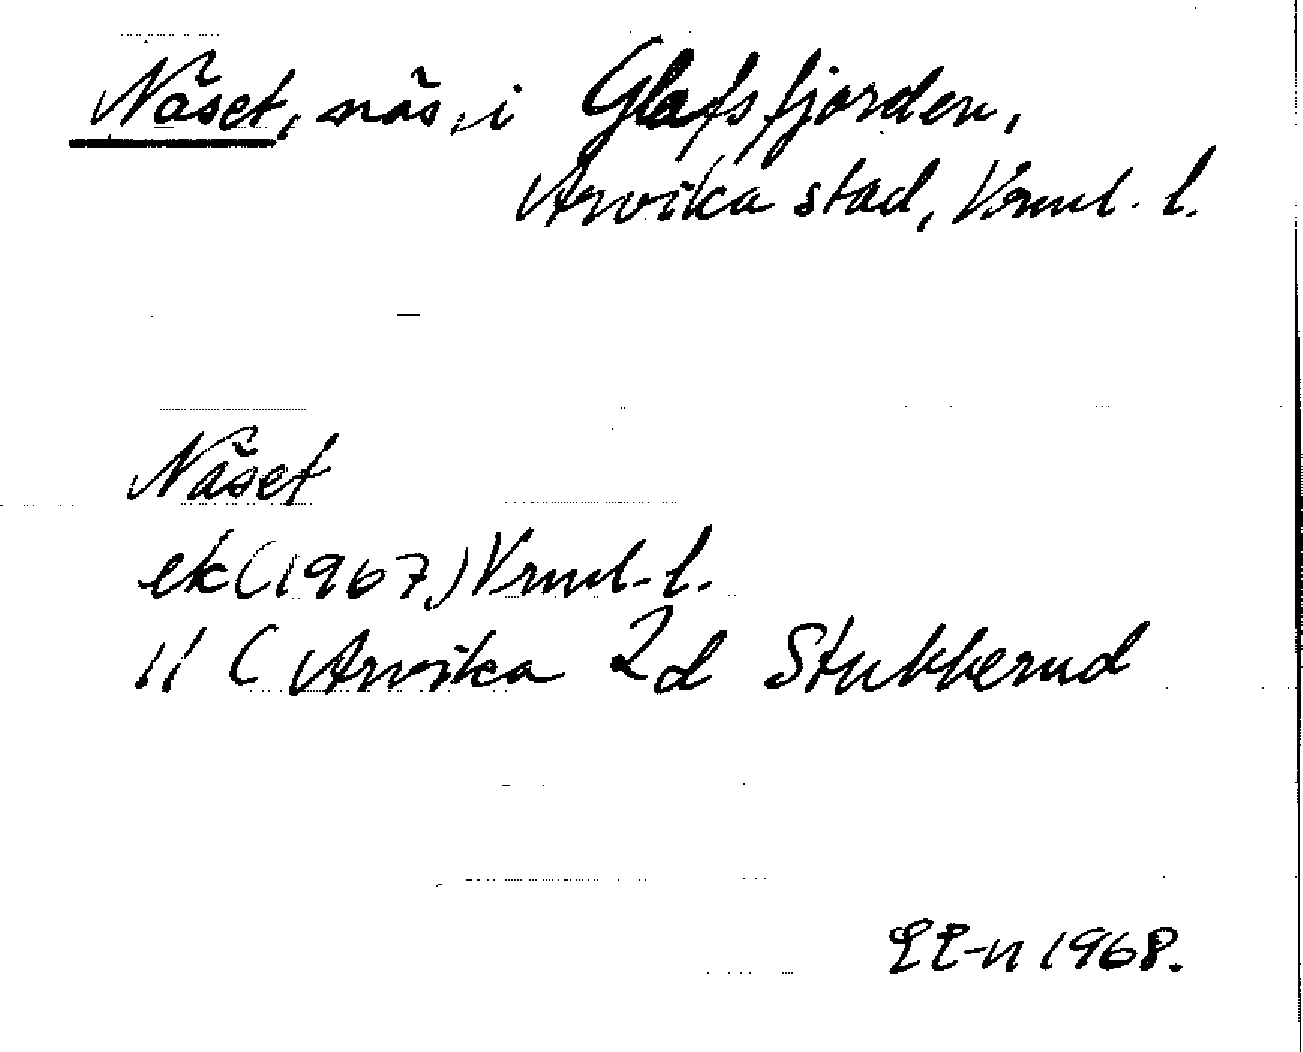 Näset, näs i Glafsfjorden,
Arvika stad, Vrml. l.
Näset
ek (1967) Vrml. l.
11 C Arvika 2d Stubberud
EE-n 1968.